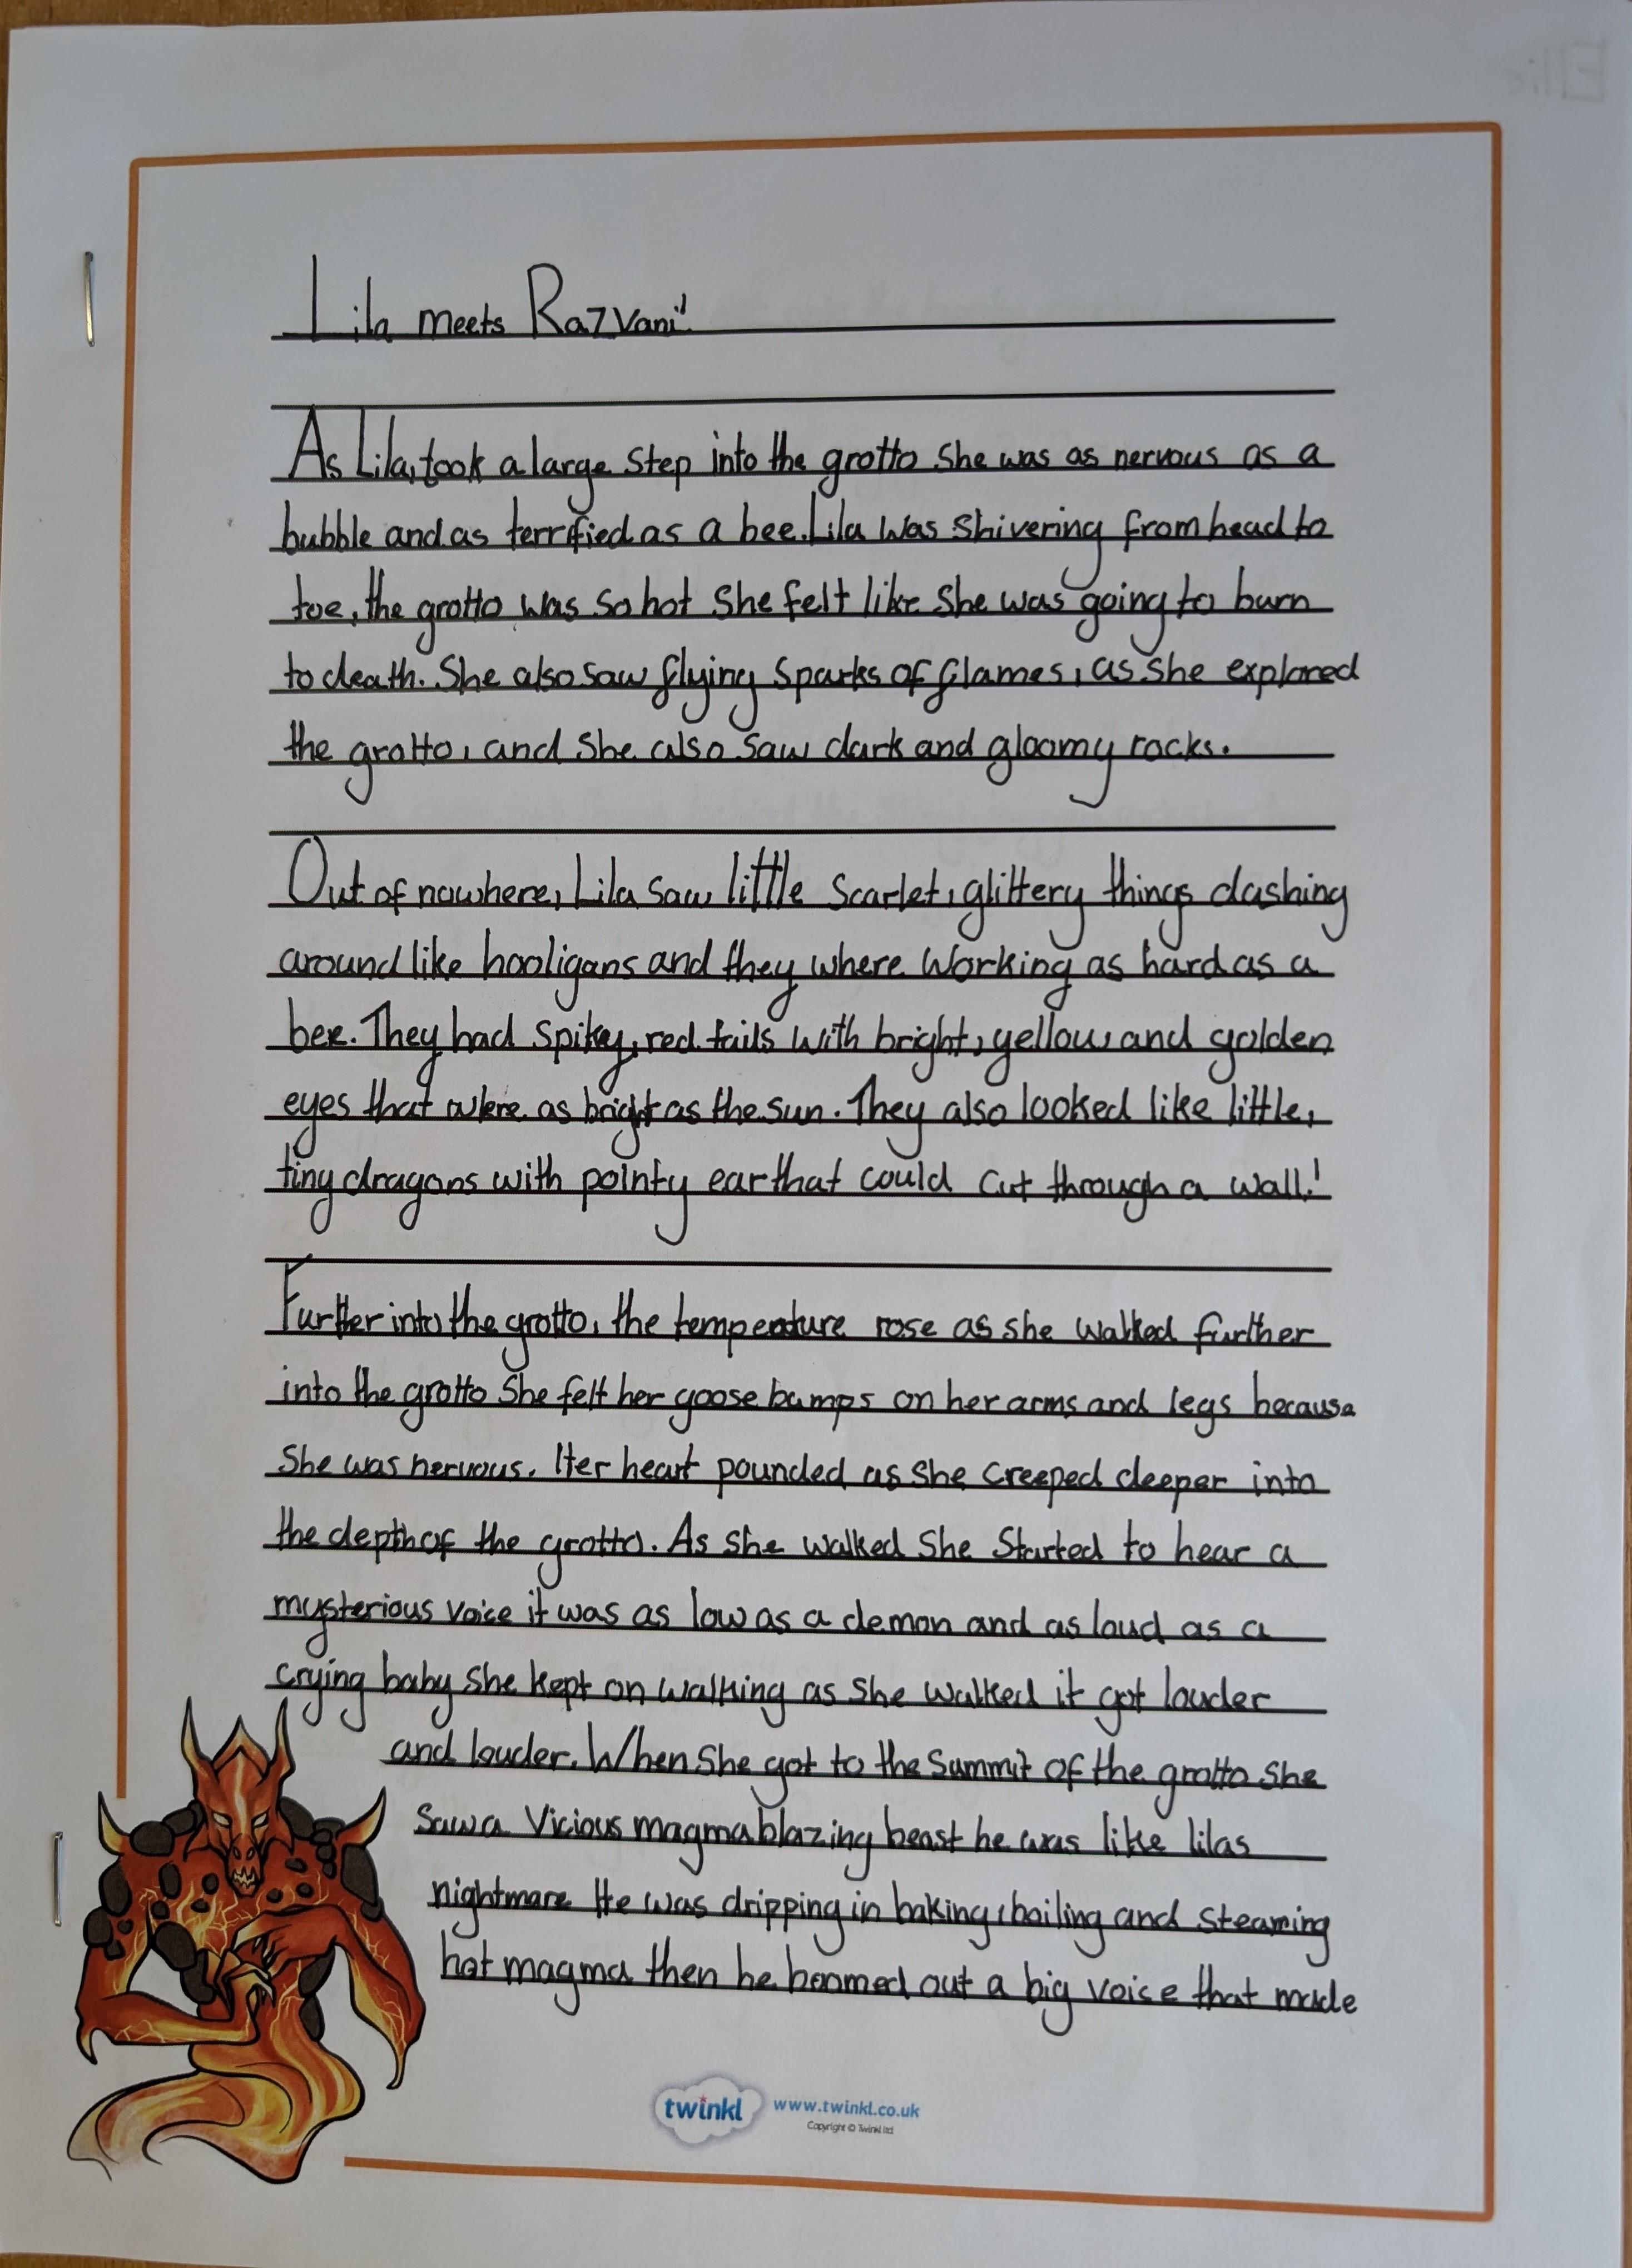 Lila meets Razvani!
As Lila, took a large step into the grotto she was as nervous as a
bubble and as terrified as a bee. Lila was shivering from head to
toe, the grotto was so hot she felt like she was going to burn
to death. She also saw flying sparks of flames, as she explored
the grotto, and she also saw dark and gloomy rocks.
Out of nowhere, Lila saw little scarlet, glittery things dashing
around like hooligans and they where working as hard as a
bee. They had spikey, red tails with bright, yellow and golden
eyes that were as bright as the sun. They also looked like little,
tiny dragons with pointy ear that could cut through a wall!
Further into the grotto, the temperature rose as she walked further
into the grotto she felt her goose bumps on her arms and legs because
she was nervous. Her heart pounded as she creeped deeper into
the depth of the grotto. As she walked she started to hear a
mysterious voice it was as low as a demon and as loud as a
crying baby she kept on walking as she walked it got louder
and louder. When she got to the summit of the grotto she
saw a vicious magma blazing beast he was like lilas
nightmare He was dripping in baking, boiling and steaming
hot magma then he boomed out a big voice that made
twinkl www.twinkl.co.uk
Copyright © Twinkl ltd
Ellie